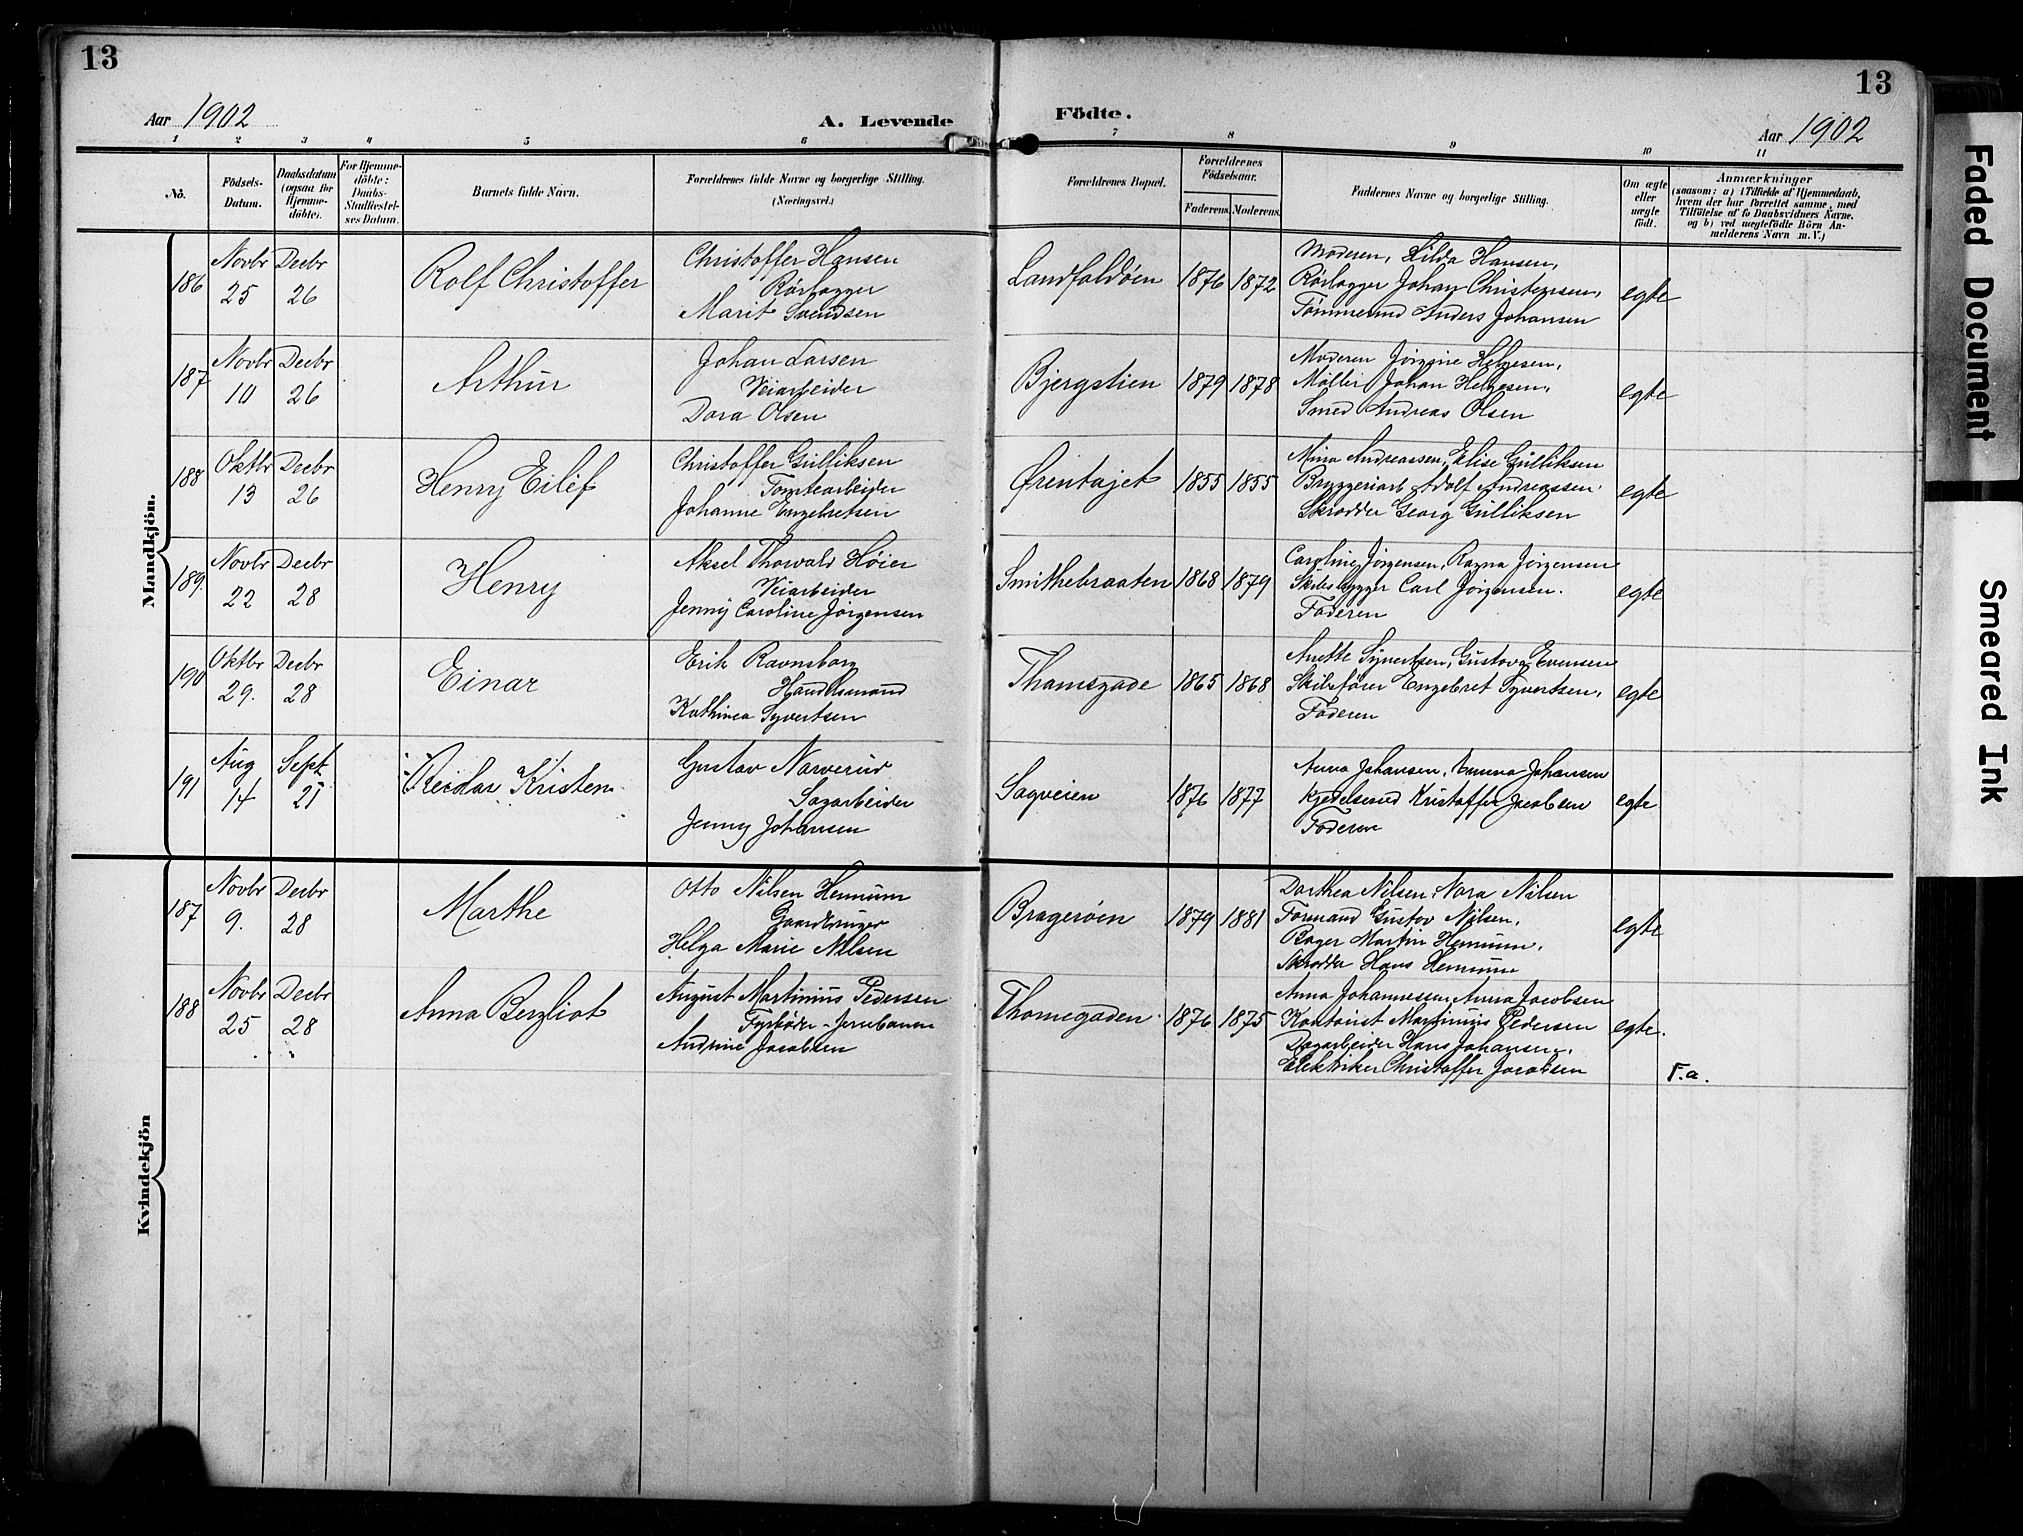 13
Aar 1902
A. Levende
1 2 3 4 5 6
No.
Födsels-
Datum.
Daabsdatum
(ogsaa for
Hjemme-
döbte).
For Hjemme-
döbte:
Daabs-
Stadfæstel-
ses Datum.
Barnets fulde Navn.
Forældrenes fulde Navne og borgerlige Stilling.
(Næringsvei.)
Mandkjön.
186
Novbr
25
Decbr
26
Rolf Christoffer
Christoffer Hansen
Rørlægger
Marit Svendsen
187
Novbr
10
Decbr
26
Arthur
Johan Larsen
Veiarbeider
Dora Olsen
188
Oktbr
13
Decbr
26
Henry Eilef
Christoffer Gulliksen
Tomtearbeider
Johanne Engebretsen
189.
Novbr
22
Decbr
28
Henry
Aksel Thorvald Høier
Veiarbeider
Jenny Caroline Jørgensen
190
Oktbr
29.
Decbr
28
Einar
Erik Ravnsborg
Handelsmand
Kathinca Syvertsen
191
Aug
14
Sept
21
Reidar Kristen
Gustav Narverud
Sagarbeider
Jenny Johansen
Kvindekjön
187
Novbr
9.
Decbr
28
Marthe
Otto Nilsen Hennum
Gaardbruger
Helga Marie Nilsen
188
Novbr
25
Decbr
28
Anna Bergliot
August Martinius Pedersen
Fyrbøder - Jernbanen
Andrine Jacobsen
13
Födte.
Aar 1902
7 8 9 10 11
Forældrenes Bopæl.
Forældrenes
Födselsaar.
Faderens Moderens
Faddernes Navne og borgerlige Stilling.
Om ægte
eller
uægte
födt.
Anmærkninger
(saasom: a) i Tilfælde af Hjemmedaab,
hvem der har forrettet samme, med
Tilföielse af to Daabsvidners Navne.
og b) ved uægtefödte Börn An-
melderens Navn m. V.)
Landfaldøen
1876
1872
Moderen, Hilda Hansen,
Rørlægger Johan Christensen,
Tømmermd Anders Johansen
egte
Bjergstien
1879
1878
Moderen Jørgine Helgesen,
Møller Johan Helgesen,
Smed Andreas Olsen
egte
Ørentajet
1855
1855
Mina Andreassen, Elise Gulliksen
Bryggeriarb Adolf Andreassen
Skrædder Georg Gulliksen
egte
Smithebraaten
1868
1879
Caroline Jørgensen, Ragna Jørgensen
Skibsbygger Carl Jørgensen.
Faderen
egte
Thamsgade
1865
1868
Anette Syvertsen, Gustava Evensen
Skibsfører Engebret Syvertsen,
Faderen
egte
Sagveien
1876
1877
Anna Johansen, Emma Johansen
Kjedelsmed Kristoffer Jacobsen
Faderen
egte
Bragerøen
1879
1881
Dorthea Nilsen, Nora Nilsen
Formand Gustav Nilsen,
Bager Martin Hennum,
Skrædder Hans Hennum
egte
Thornegaden
1876
1875
Anna Johannessen, Anna Jacobsen
Kontorist Martinius Pedersen
Dagarbeider Hans Johansen,
Elektriker Christoffer Jacobsen
egte.
F.a.
Faded Document
Smeared Ink